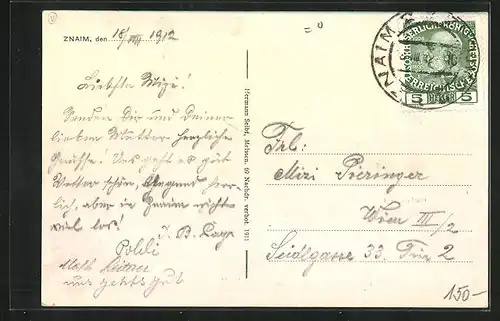 ZNAIM, den 18/VIII 1912
Liebste Mizi!
Senden Dir und Deiner
lieben Mutter herzliche
Grüsse! Uns geht es gut
Wetter schön, Gegend herr-
lich, aber in Znaim nichts
viel los!
Poldi
uns gehts gut
Hermann Seibt, Meissen. 60 Nachdr. verbot. 1911
ZNAIM
5 1908 5
Frl:
Mizi Pieringer
Wien III/2
Seidlgasse 33 Tür 2
150-